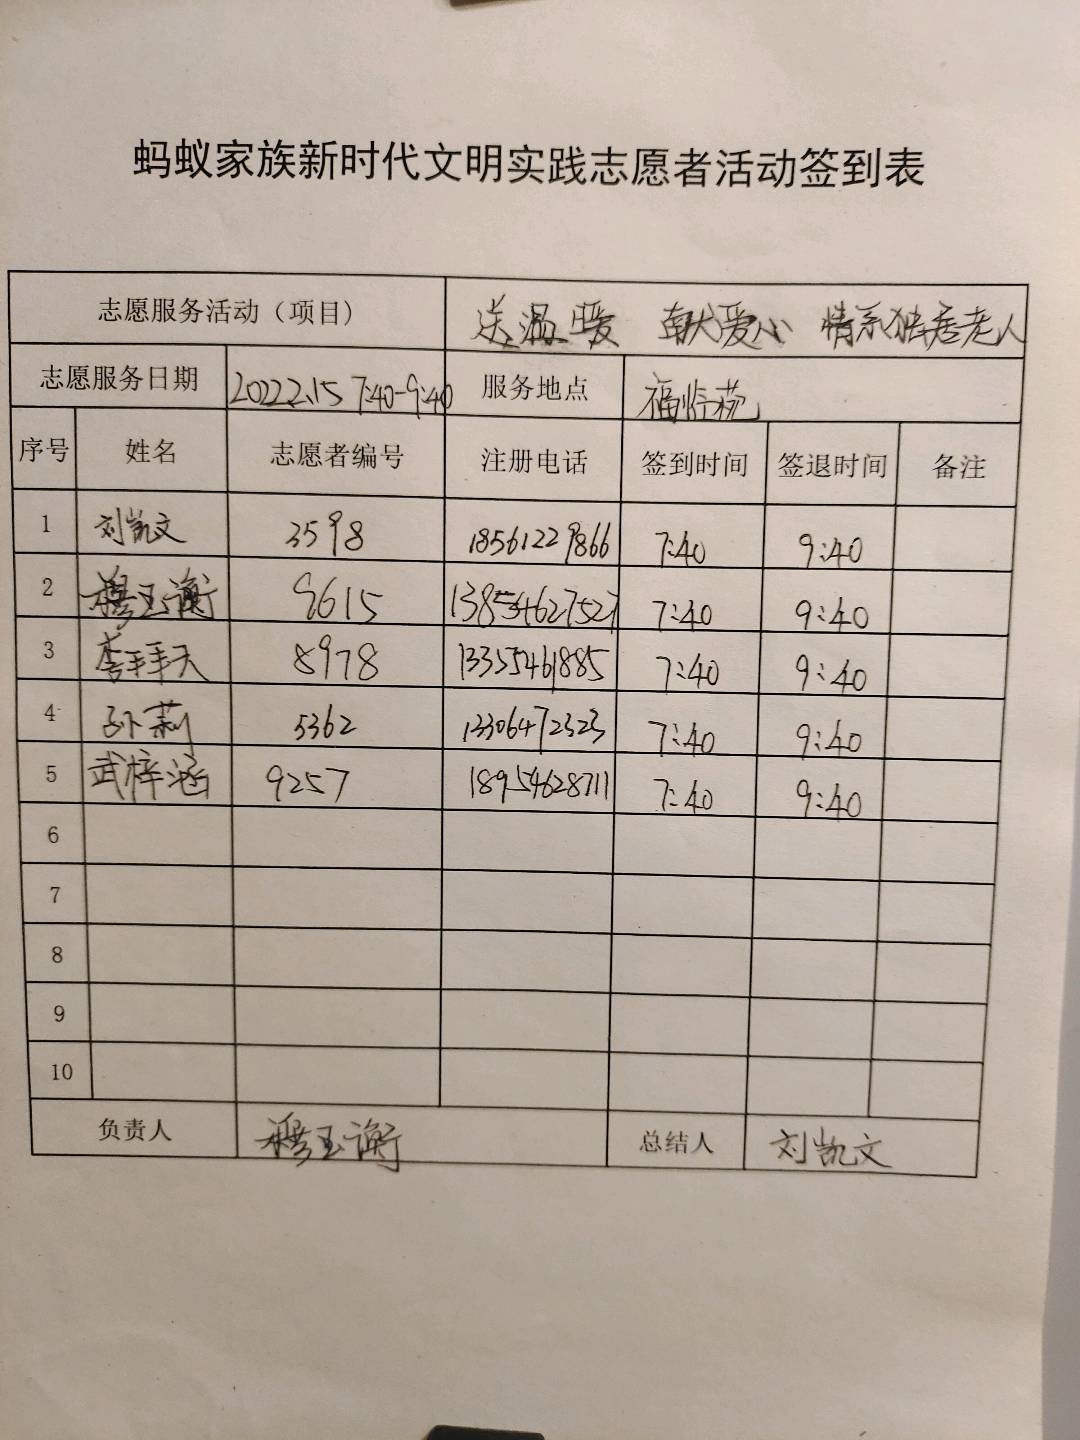 蚂蚁家族新时代文明实践志愿者活动签到表
志愿服务活动（项目） 送温暖 献爱心 情系独居老人
志愿服务日期 2022.2.15 7:40-9:40 服务地点 福临苑
序号 姓名 志愿者编号 注册电话 签到时间 签退时间 备注
1 刘凯文 3598 18561229866 7:40 9:40
2 穆玉衡 9615 13854627527 7:40 9:40
3 李天 8978 13355461885 7:40 9:40
4 孙莉 5362 13306472323 7:40 9:40
5 武梓涵 9257 18954628711 7:40 9:40
6
7
8
9
10
负责人 穆玉衡 总结人 刘凯文